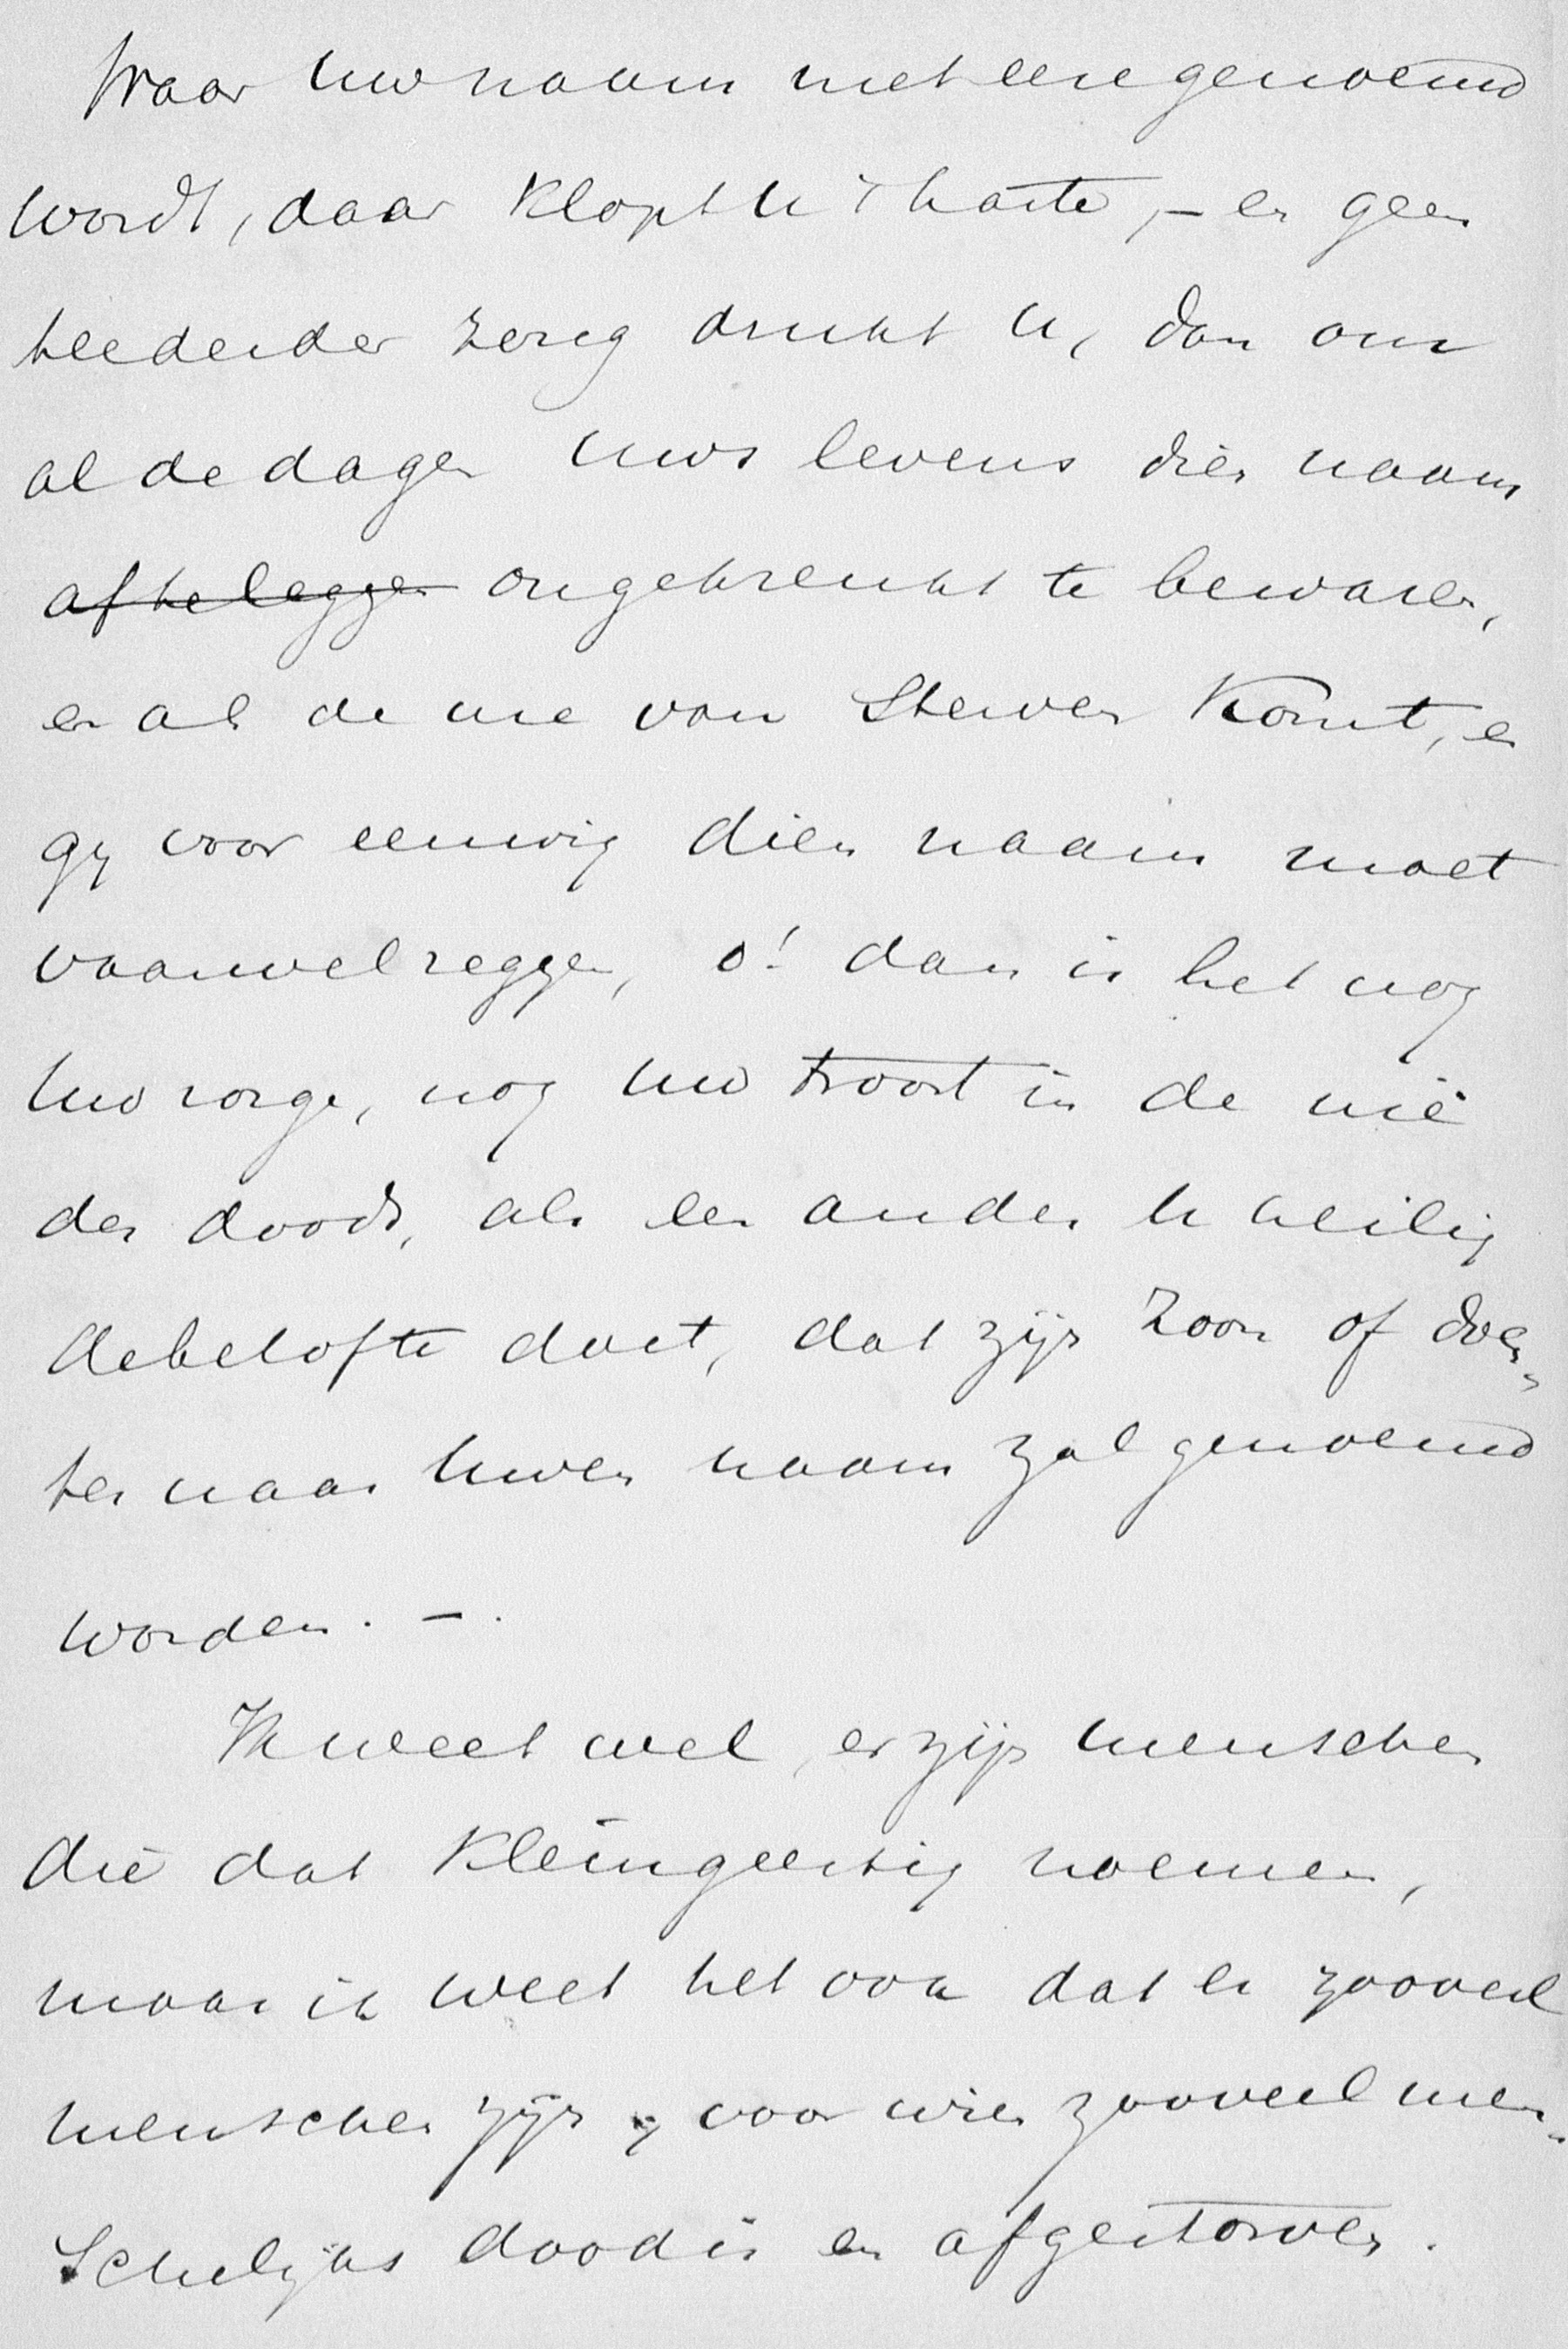 Waar uw naam met eere genoemd
wordt, daar klopt u 't harte, – en geen
teederder zorg drukt u, dan om
al de dagen uws levens dien naam
af te leggen ongekrenkt te bewaren,
en als de ure van sterven komt, en
gy voor eeuwig dien naam moet
vaarwel zeggen, o! dan is het nog
uw zorge, nog uw troost in de ure
des doods, als een ander u heilig
de belofte doet, dat zijn zoon of doch-
ter naar uwen naam zal genoemd
worden. –.
Ik weet wel, er zijn menschen
die dat kleingeestig noemen,
maar ik weet het ook dat er zooveel
menschen zijn, voor wien zooveel men-
schelijks dood is en afgestorven.